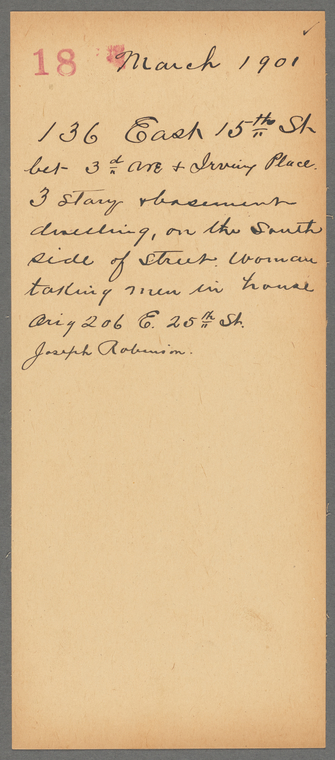 18 March 1901
136 East 15th St
bet 3d Ave & Irving Place.
3 Story & basement
dwelling, on the South
side of street. Woman
taking men in house
Orig 206 E. 25th St.
Joseph Robinson.